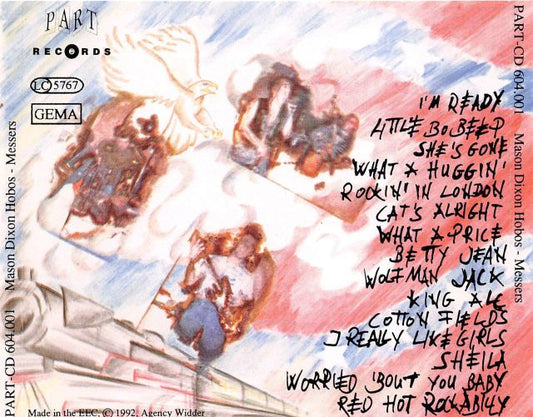 PART
RECORDS
LC 5767
GEMA
PART-CD 604.001 Mason Dixon Hobos - Messers
I'M READY
LITTLE BO BEEP
SHE'S GONE
WHAT A HUGGIN'
ROCKIN' IN LONDON
CAT'S ALRIGHT
WHAT A PRICE
BETTY JEAN
WOLFMAN JACK
KING ALC
COTTON FIELDS
I REALLY LIKE GIRLS
SHEILA
WORRIED 'BOUT YOU BABY
RED HOT ROCKABILLY
Made in the EEC, © 1992, Agency Widder
PART-CD 604.001 Mason Dixon Hobos - Messers